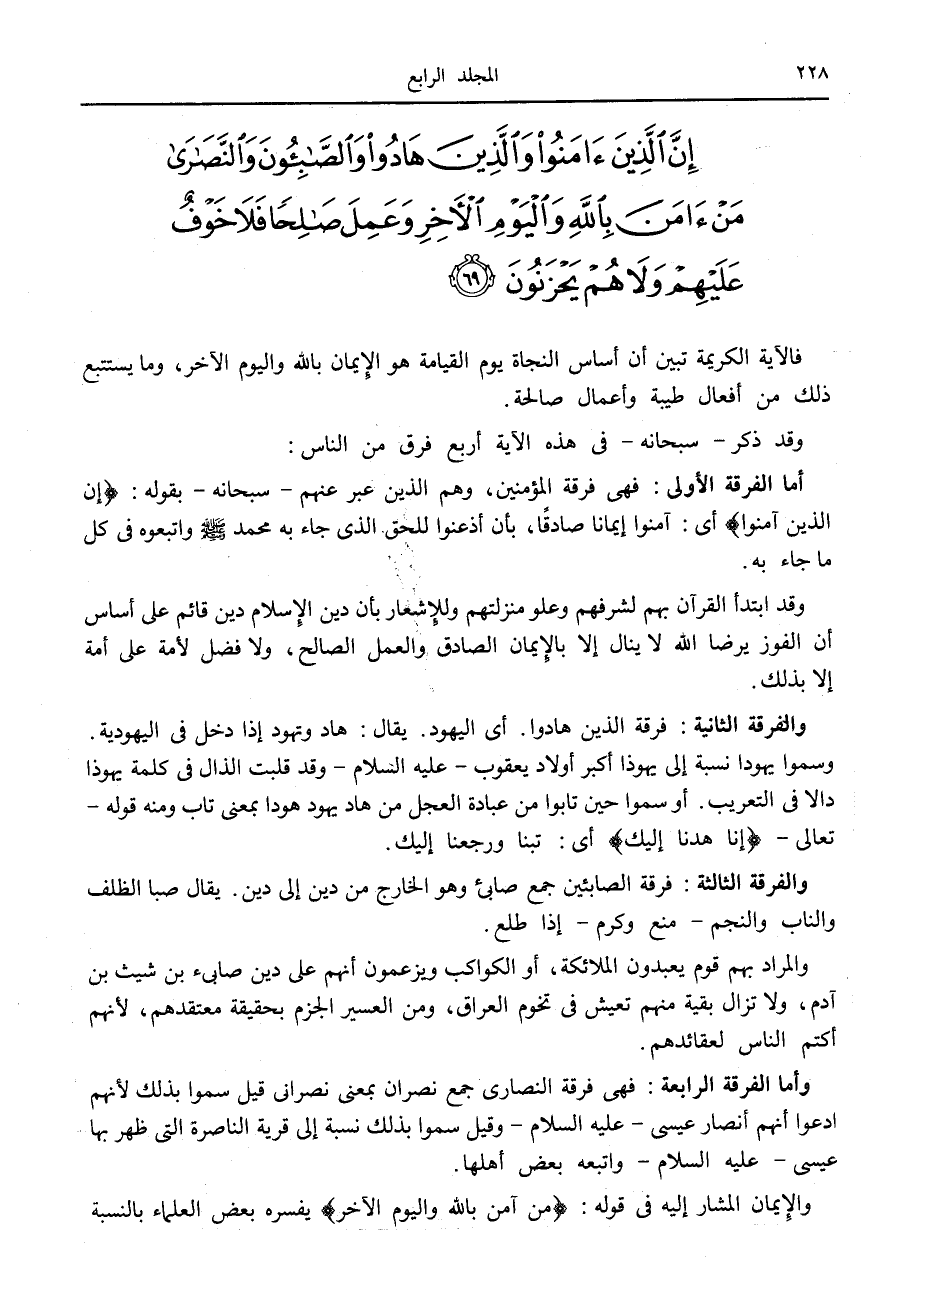 ٢٢٨
المجلد الرابع
إِنَّ ٱلَّذِينَ ءَامَنُوا۟ وَٱلَّذِينَ هَادُوا۟ وَٱلصَّٰبِـُٔونَ وَٱلنَّصَٰرَىٰ
مَنْ ءَامَنَ بِٱللَّهِ وَٱلْيَوْمِ ٱلْأَخِرِ وَعَمِلَ صَٰلِحًا فَلَا خَوْفٌ
عَلَيْهِمْ وَلَا هُمْ يَحْزَنُونَ ٦٩
فالآية الكريمة تبين أن أساس النجاة يوم القيامة هو الإيمان بالله واليوم الآخر، وما يستتبع
ذلك من أفعال طيبة وأعمال صالحة.
وقد ذكر - سبحانه - فى هذه الآية أربع فرق من الناس :
أما الفرقة الأولى : فهى فرقة المؤمنين، وهم الذين عبر عنهم - سبحانه - بقوله : ﴿إن
الذين آمنوا﴾ أى : آمنوا إيمانا صادقًا، بأن أذعنوا للحق الذى جاء به محمد ﷺ واتبعوه فى كل
ما جاء به.
وقد ابتدأ القرآن بهم لشرفهم وعلو منزلتهم وللإشعار بأن دين الإسلام دين قائم على أساس
أن الفوز برضا الله لا ينال إلا بالإيمان الصادق والعمل الصالح، ولا فضل لأمة على أمة
إلا بذلك.
والفرقة الثانية : فرقة الذين هادوا. أى اليهود. يقال : هاد وتهود إذا دخل فى اليهودية.
وسموا يهودا نسبة إلى يهوذا أكبر أولاد يعقوب - عليه السلام - وقد قلبت الذال فى كلمة يهوذا
دالا فى التعريب. أو سموا حين تابوا من عبادة العجل من هاد يهود هودا بمعنى تاب ومنه قوله -
تعالى - ﴿إنا هدنا إليك﴾ أى : تبنا ورجعنا إليك.
والفرقة الثالثة : فرقة الصابئين جمع صابئ وهو الخارج من دين إلى دين. يقال صبا الظلف
والناب والنجم - منع وكرم - إذا طلع.
والمراد بهم قوم يعبدون الملائكة، أو الكواكب ويزعمون أنهم على دين صابىء بن شيث بن
آدم، ولا تزال بقية منهم تعيش فى تخوم العراق، ومن العسير الجزم بحقيقة معتقدهم، لأنهم
أكتم الناس لعقائدهم.
وأما الفرقة الرابعة : فهى فرقة النصارى جمع نصران بمعنى نصرانى قيل سموا بذلك لأنهم
ادعوا أنهم أنصار عيسى - عليه السلام - وقيل سموا بذلك نسبة إلى قرية الناصرة التى ظهر بها
عيسى - عليه السلام - واتبعه بعض أهلها.
والإيمان المشار إليه فى قوله : ﴿من آمن بالله واليوم الآخر﴾ يفسره بعض العلماء بالنسبة